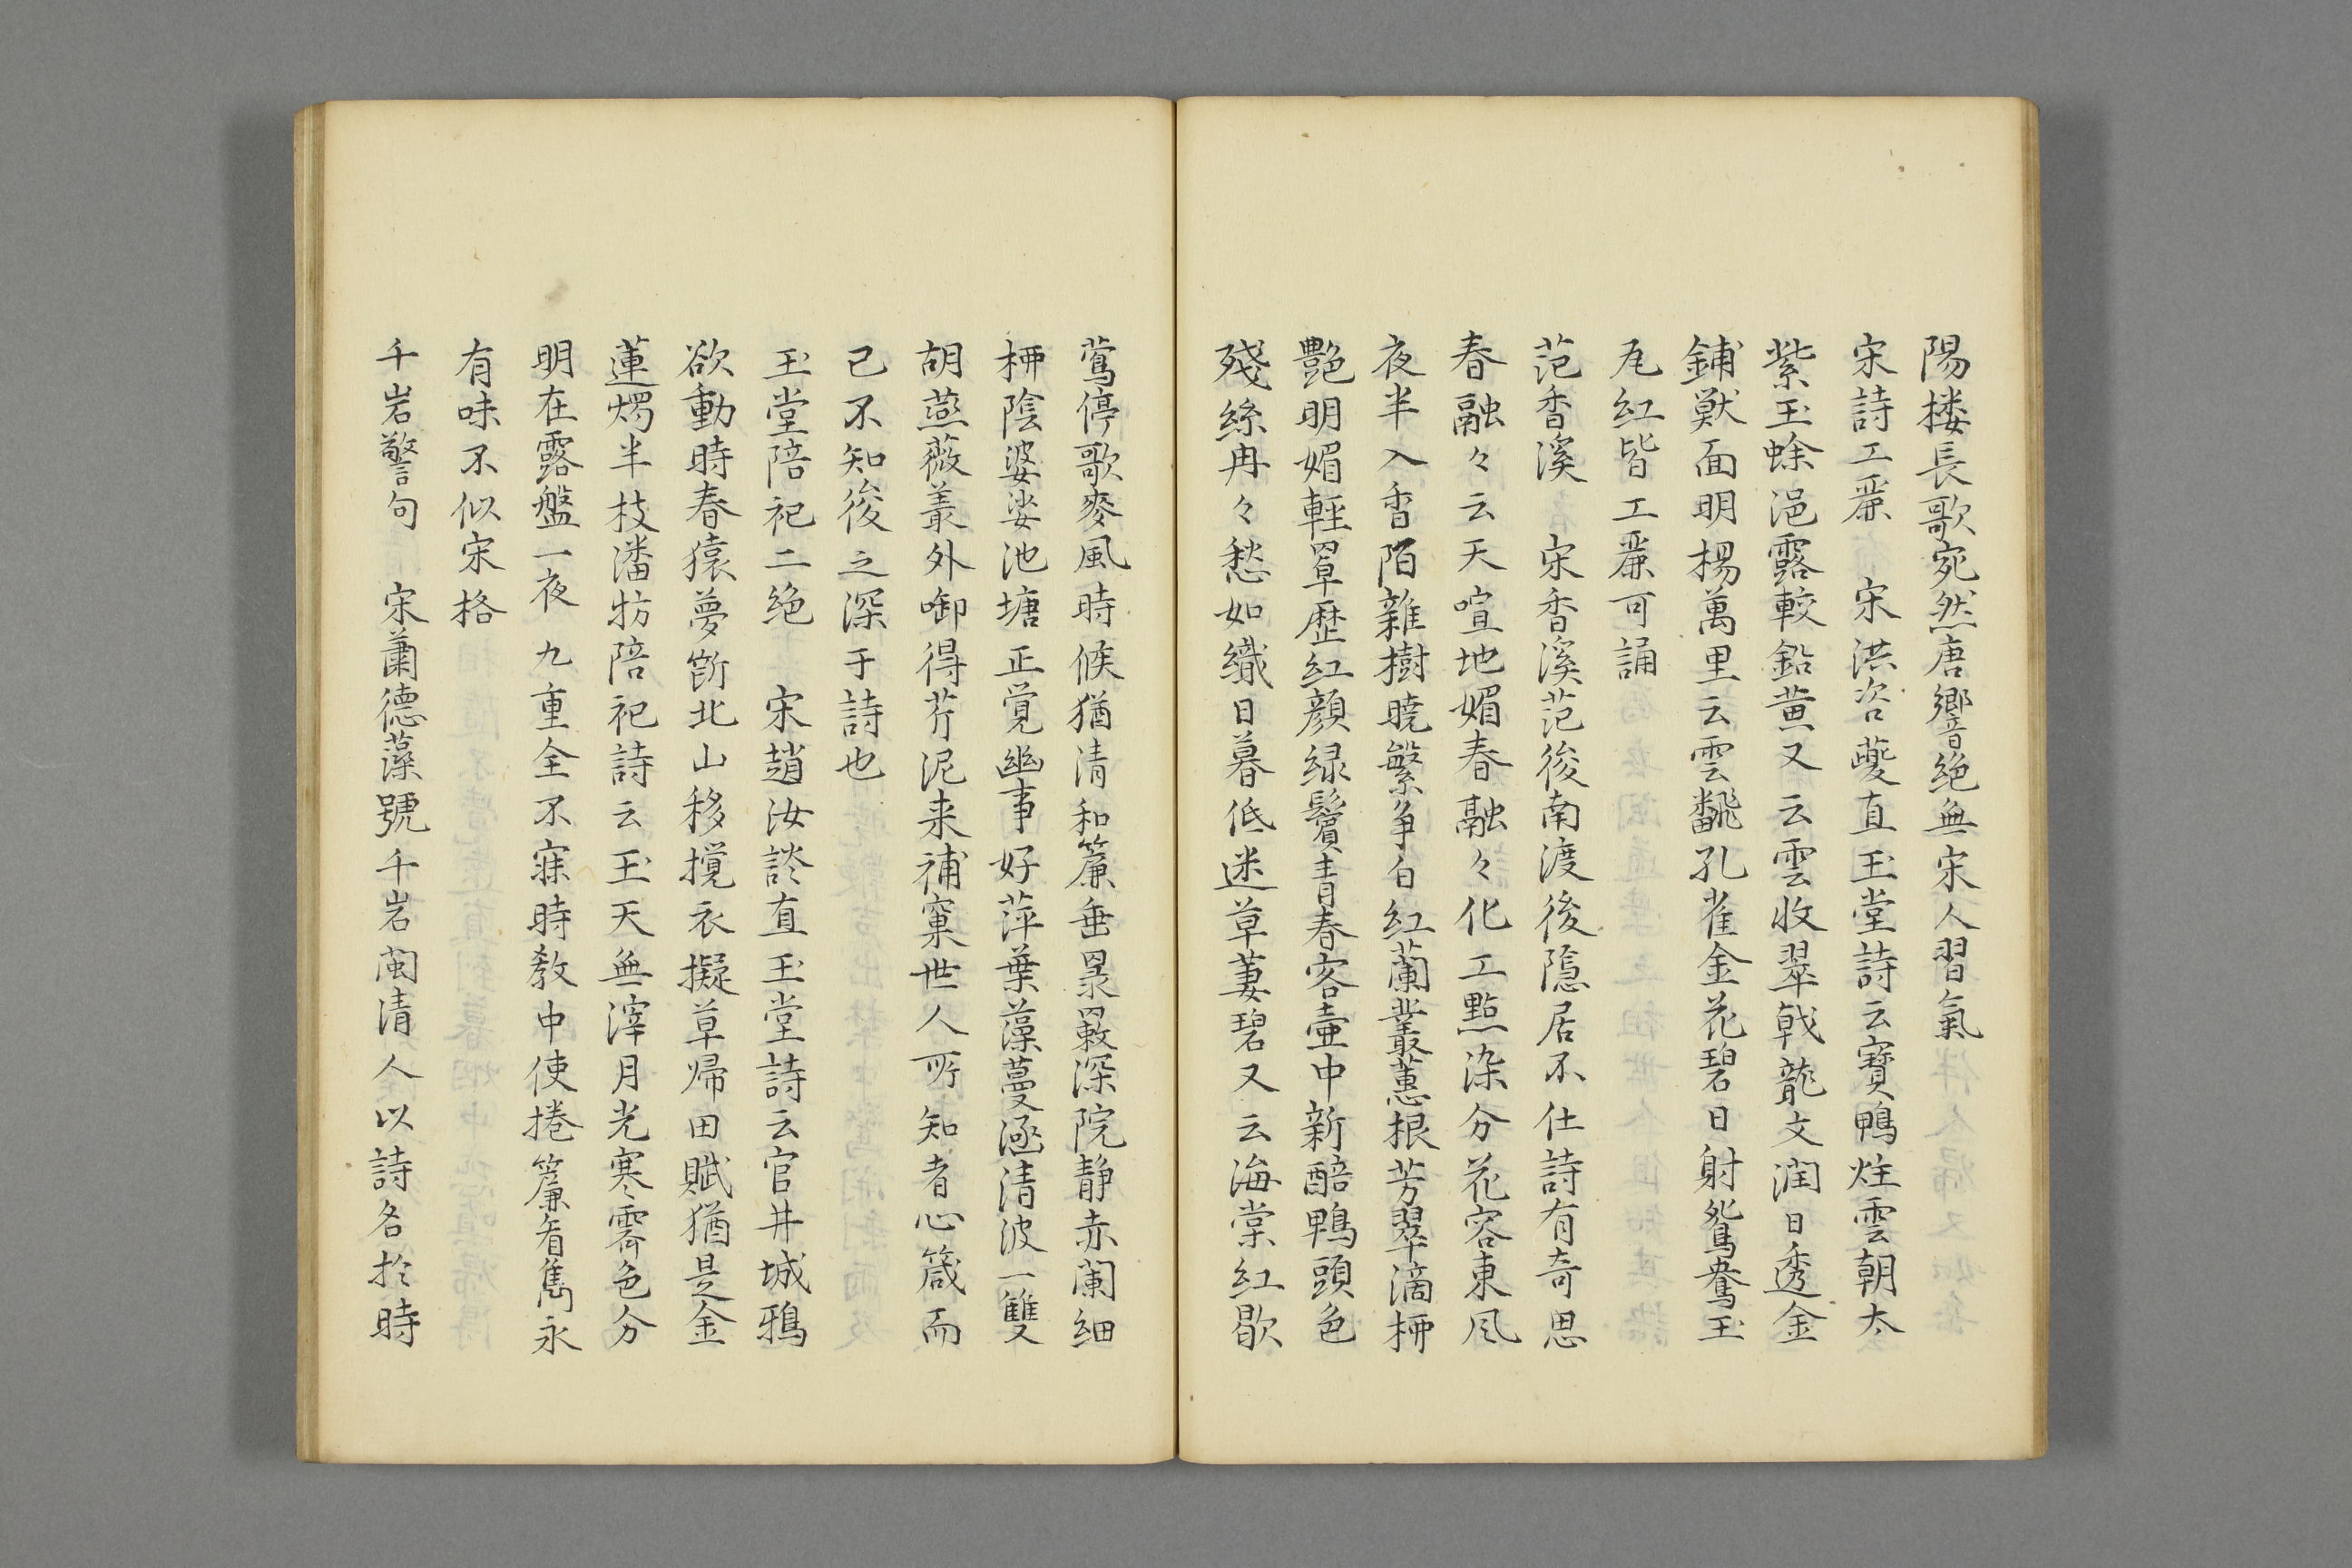 陽楼長歌宛然唐響絶無宋人習氣
宋詩工麗　宋洪咨夔直玉堂詩云寶鴨炷雲朝太
紫玉蜍浥露較鉛黄又云雲收翠戟龍文潤日透金
鋪獸面明楊萬里云雲飜孔雀金花碧日射鴛鴦玉
瓦紅皆工麗可誦
范香溪　宋香溪范後南渡後隠居不仕詩有奇思
春融々云天喧地媚春融々化工點染分花容東風
夜半入香陌雜樹暁繁争白紅蘭叢蕙根芳翠滴栁
艶明媚輕罩歴紅顔緑鬢青春客壷中新醅鴨頭色
殘絲冉々愁如織日暮低迷草萋碧又云海棠紅歇
鶯停歌麥風時候猶清和簾垂罘罳深院静赤闌細
栁陰婆娑池塘正覚幽事好萍葉藻蔓涵清波一雙
胡燕薇叢外啣得芹泥来補窠世人所知者心箴而
已不知後之深于詩也
玉堂陪祀二絶　宋趙汝談直玉堂詩云官井城鴉
欲動時春猿夢斷北山移攪衣擬草帰田賦猶是金
蓮燭半枝潘牥陪祀詩云玉天無滓月光寒霽色分
明在露盤一夜九重全不寐時教中使捲簾看雋永
有味不似宋格
千岩警句　宋蕭德藻號千岩閩清人以詩名於時